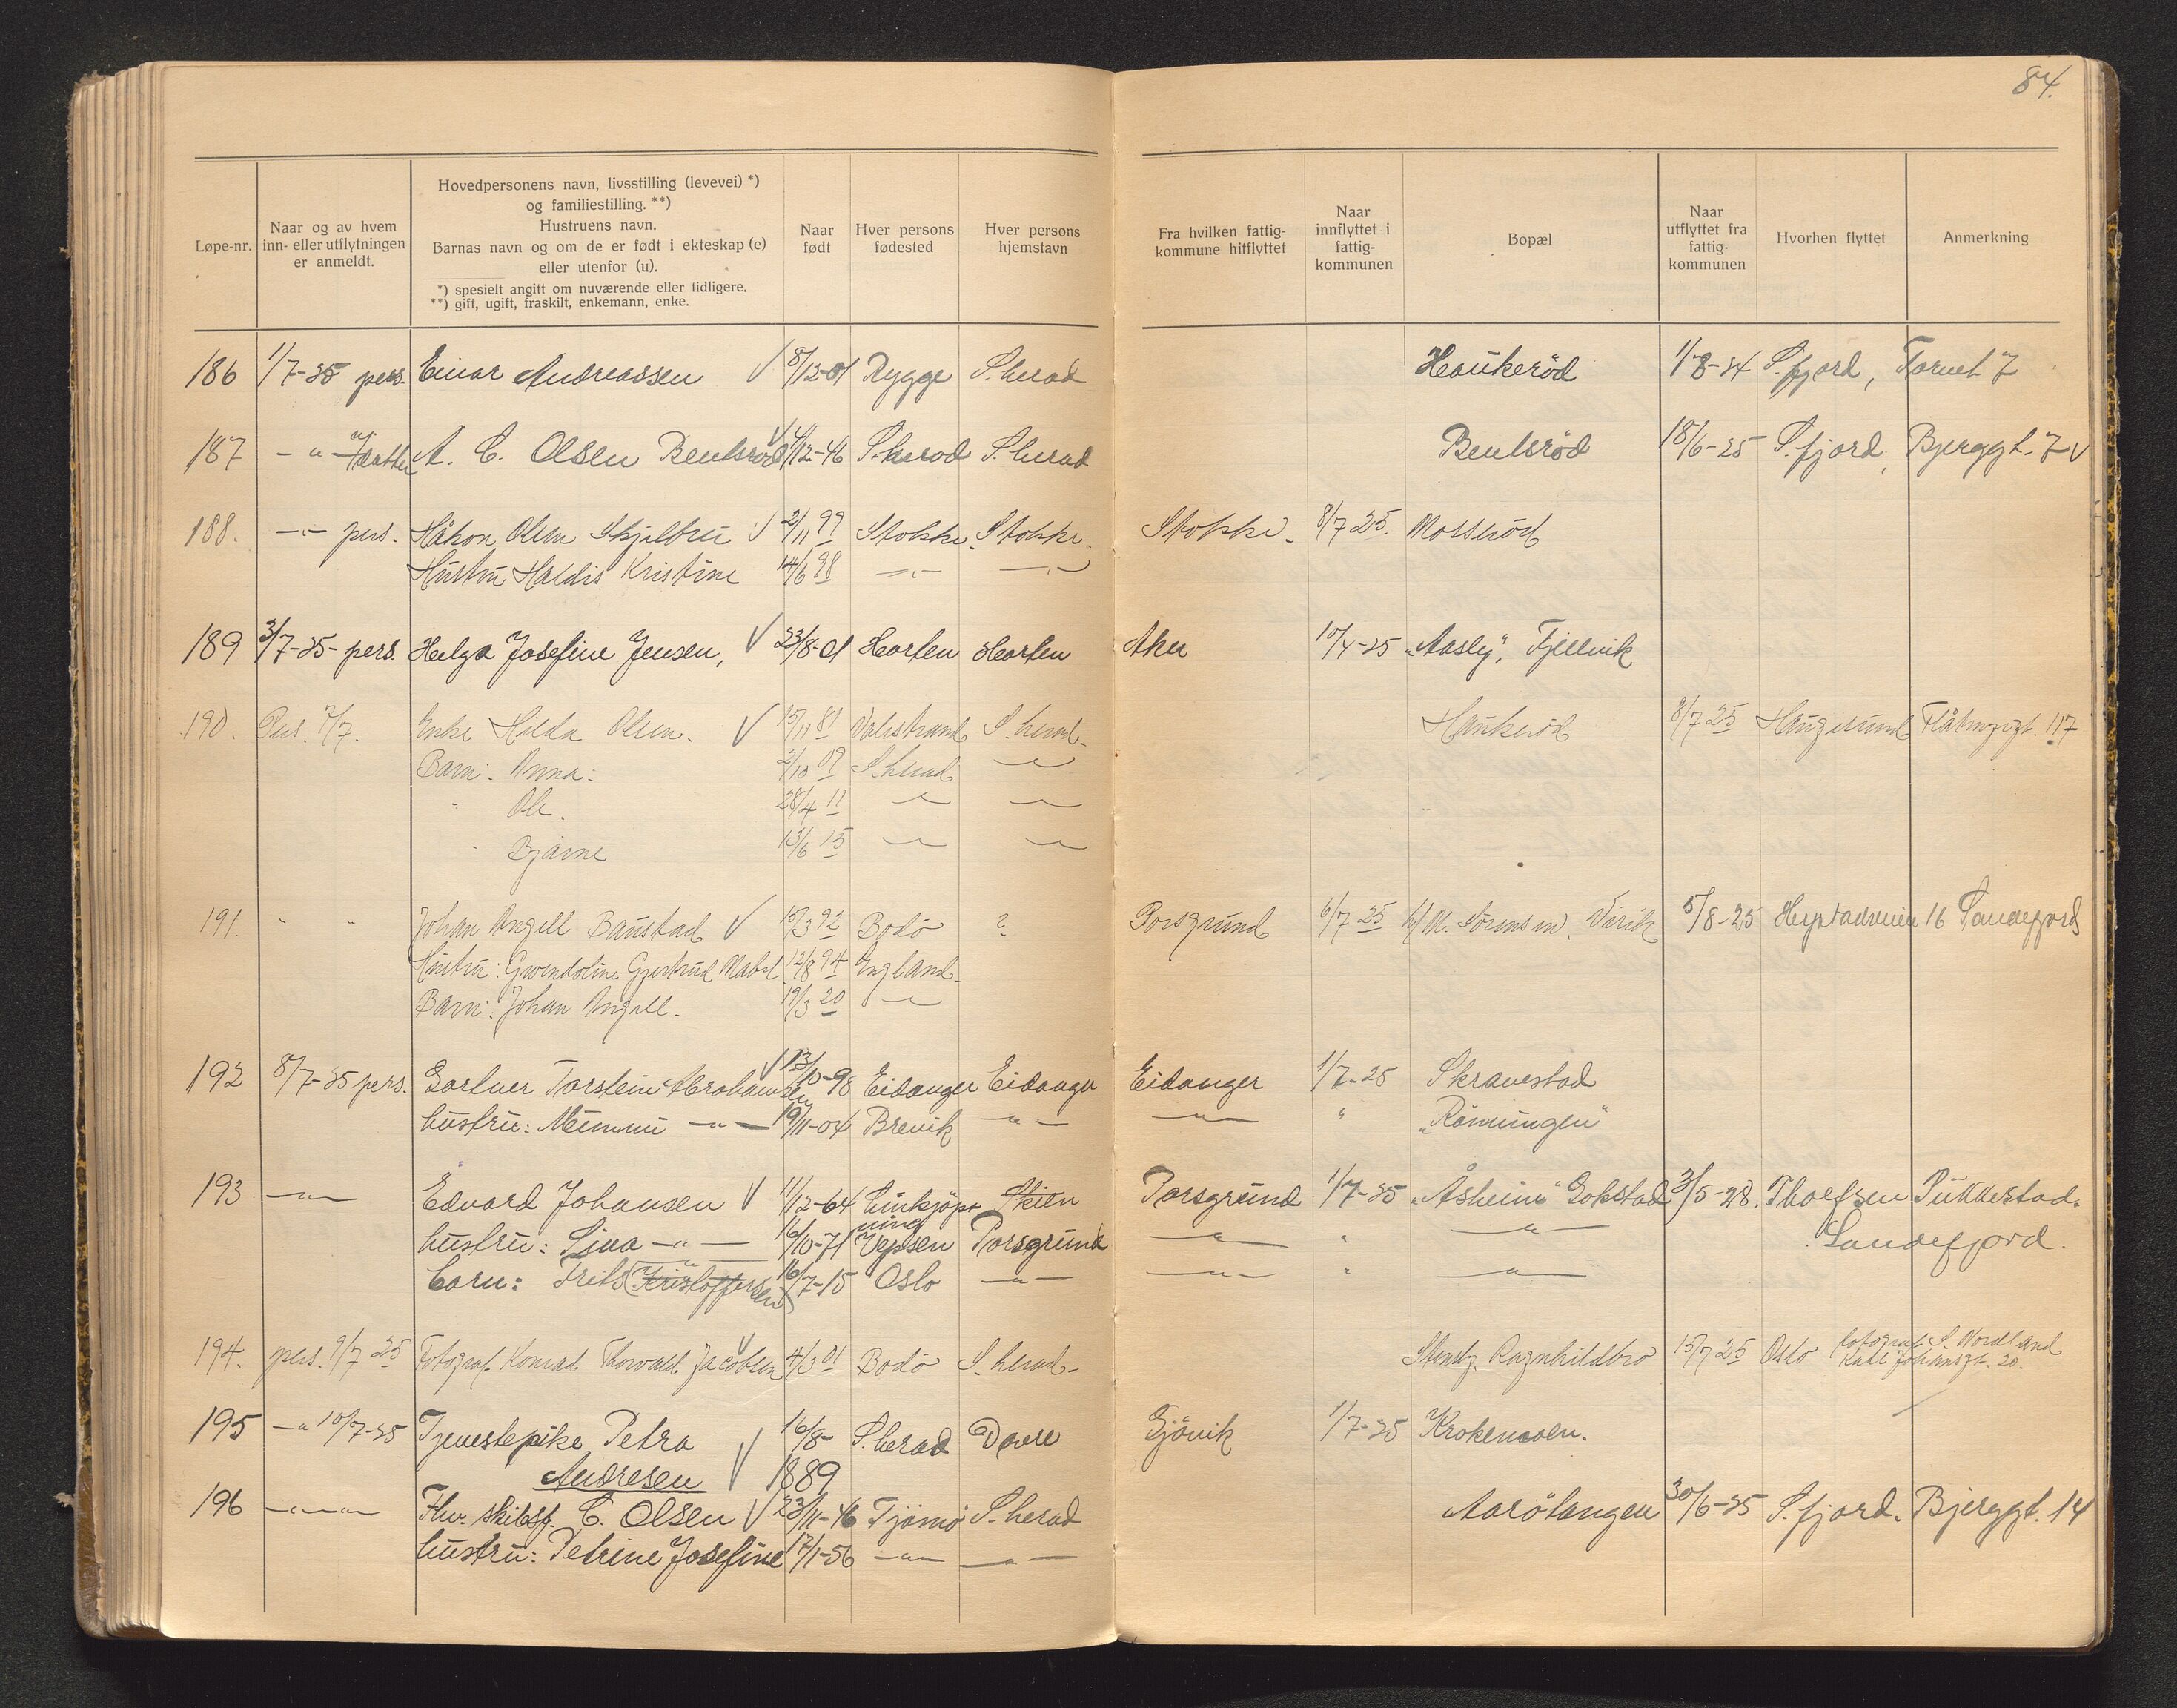 84.
Løpe-nr.
Naar og av hvem
inn- eller utflytningen
er anmeldt.
Hovedpersonens navn, livsstilling (levevei) *)
og familiestilling. **)
Hustruens navn.
Barnas navn og om de er født i ekteskap (e)
eller utenfor (u).
*) spesielt angitt om nuværende eller tidligere.
**) gift, ugift, fraskilt, enkemann, enke.
Naar
født
Hver persons
fødested
Hver persons
hjemstavn
Fra hvilken fattig-
kommune hitflyttet
Naar
innflyttet i
fattig-
kommunen
Bopæl
Naar
utflyttet fra
fattig-
kommunen
Hvorhen flyttet
Anmerkning
186 1/7-25 pers. Einar Andreassen √ 8/12-01 Rygge S.herad Haukerød 1/8-24 S.fjord, Torvet 7
187 -"- A. C. Olsen Bentsrød √ /12-46 S.herad S.herad Bentsrød 18/6-25 S.fjord, Bjerggt. 7 √
188. -"- pers. Håkon Olsen Skjelbru √ 2/11 99 Stokke. Stokke. Stokke. 8/7 25. Mosserød
Hustru Haldis Kristine 14/6 98 -"- -"-
189 3/7-25- pers. Helga Josefine Jensen, √ 23/8-01 Horten Horten Aker 10/4-25 "Aasly", Fjellvik
190. Pers. 7/7. Enke Hilda Olsen. √ 15/11 81 Valestrand S.herad. Haukerød 8/7 25 Haugesund Flåtmyrgt. 117
Barn: Anna: 2/10 09 S.herad -"-
" Ole. 28/4 11 -"- -"-
" Bjarne 13/6 15 -"- -"-
191. " " Johan Angell Baustad √ 15/3 92 Bodø ? Porsgrund 6/7 25 h/ M. Sørensen, Virik 5/8-25 Hystadveien 16 Sandefjord
Hustru: Gwendoline Gjertrud Mabel 12/8 94 England.
Barn: Johan Angell. 19/3 20 -"-
192 8/7-25 pers. Gartner Torstein Abrahamsen √ 13/10-98 Eidanger Eidanger Eidanger 1/7-25 Skravestad
hustru: Mimmi -"- 19/11-04 Brevik -"- -"- " "Rønningen"
193 -"- Edvard Johansen √ 11/12-64 Linkjøping Skien Porsgrund 1/7-25 "Åsheim" Gokstad 3/5-28. Thoefsen Pukkestad.
hustru: Lina -"- 16/10-71 Vepsen Porsgrund -"- " -"- Sandefjord.
barn: Frits (Kristoffersen) 16/7-15 Oslo -"- -"- " -"-
194. pers. 9/7 25 Fotograf. Konrad Thorvald Jacobsen √ 4/3 01 Bodø S.herad. Stensg. Ragnhildbro 15/7 25 Oslo fotograf S. Nordland
Karl Johansgt. 20.
195 -"- 10/7-25 Tjenestepike Petra 16/8- S.herad Dovre Gjøvik 1/7-25 Krokemoen.
Andresen √ 1889
196 -"- Fhv. skibsf. C. Olsen √ 23/11-46 Tjømø S.herad Aarøtangen 30/6-25 S.fjord. Bjerggt. 14
hustru: Petrine Josefine 17/1-56 -"- -"-